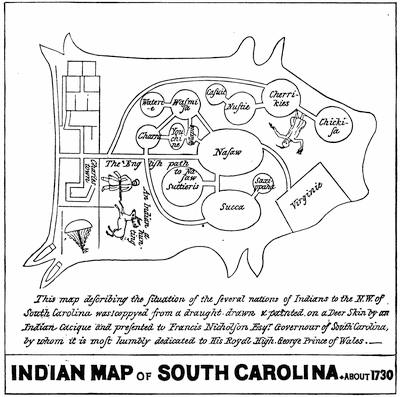 Waterie
Wasmisa
Casuie
Nustie
Cherrikies
Chickisa
Charra
Youchine
Nasaw
Charlestown
The English path
to Nasaw
Suttieris
Saxippaha
Succa
Virginie
An Indian a hunting
This map describing the situation of the several nations of Indians to the N.W. of
South Carolina was coppyed from a draught drawn & painted on a Deer Skin by an
Indian Cacique and presented to Francis Nicholson Esqr. Governour of South Carolina,
by whom it is most humbly dedicated to His Royal High. George Prince of Wales.
INDIAN MAP OF SOUTH CAROLINA. ABOUT 1730